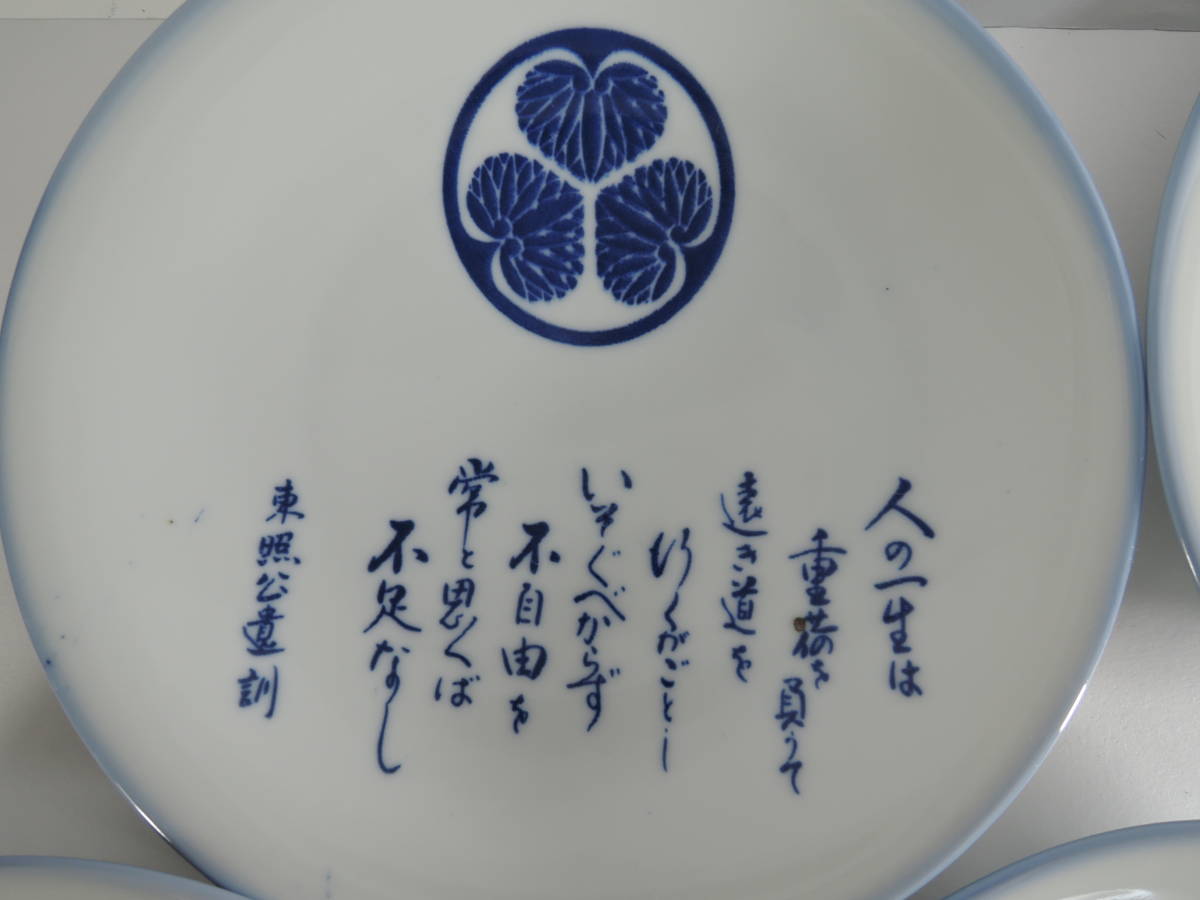 人の一生は
重荷を負うて
遠き道を
行くがごとし
いそぐべからず
不自由を
常と思へば
不足なし
東照公遺訓